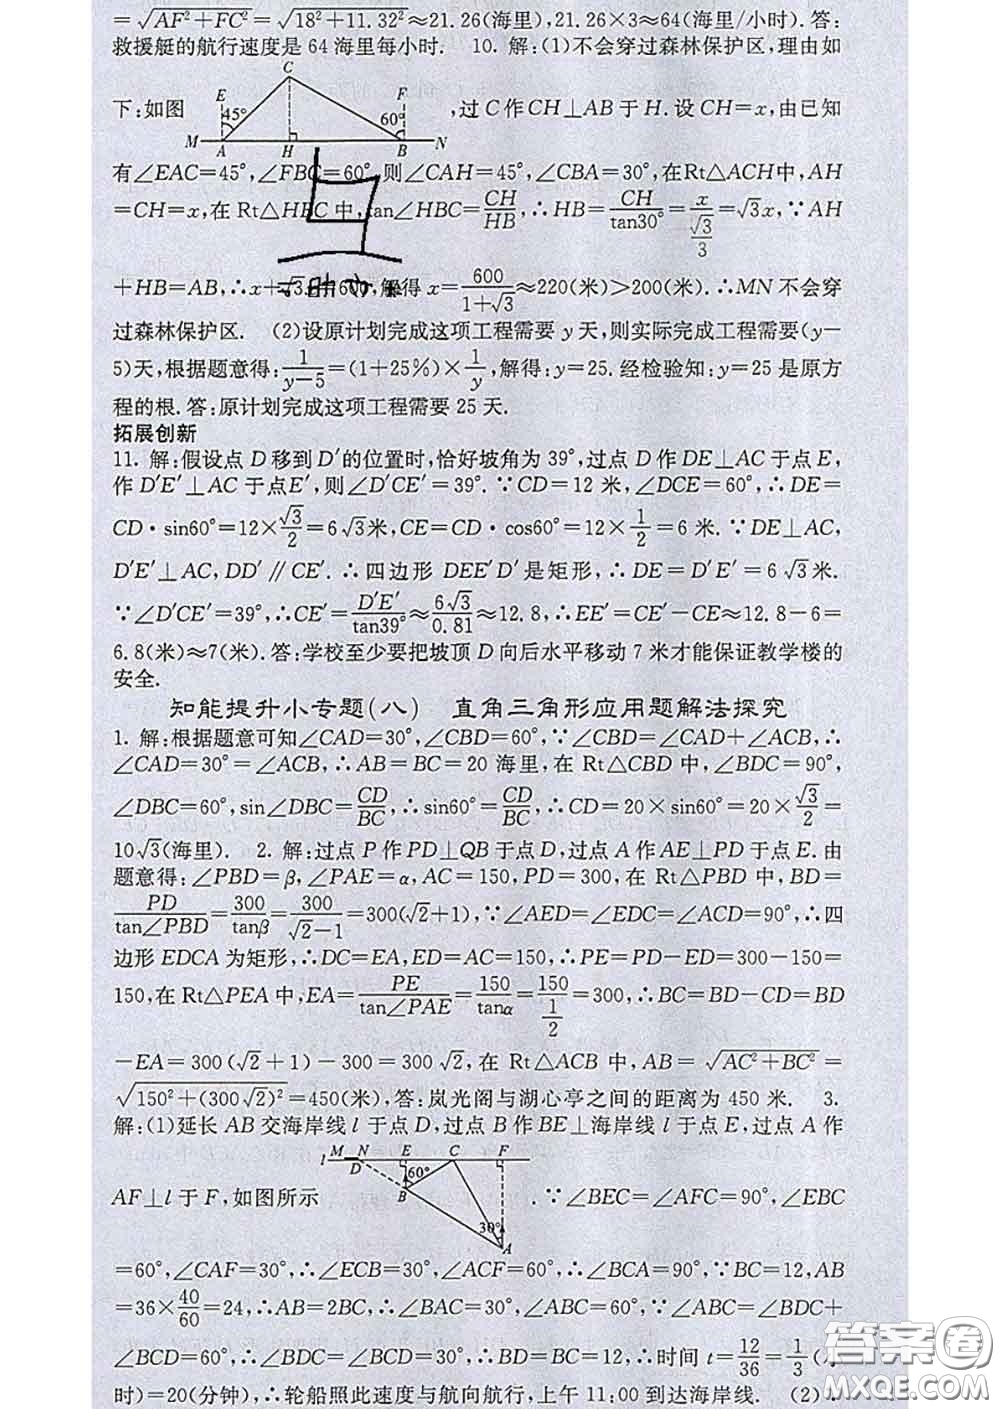 =√(AF²+FC²)=√(18²+11.32²)≈21.26(海里),21.26×3≈64(海里/小时).答:
救援艇的航行速度是 64 海里每小时. 10. 解:(1)不会穿过森林保护区,理由如
下:如图 C E F 45° 60° M A H B N ,过 C 作 CH⊥AB 于 H. 设 CH=x,由已知
有∠EAC=45°,∠FBC=60°,则∠CAH=45°,∠CBA=30°,在Rt△ACH中,AH
=CH=x,在 Rt△HBC 中,tan∠HBC=CH/HB,∴HB=CH/tan30°=x/(√3/3)=√3x,∵AH
+HB=AB,∴x+√3 解得 x=600/(1+√3)≈220(米)>200(米).∴MN 不会穿
过森林保护区. (2)设原计划完成这项工程需要 y 天,则实际完成工程需要(y-
5)天,根据题意得:1/(y-5)=(1+25%)×1/y,解得:y=25.经检验知:y=25 是原方
程的根.答:原计划完成这项工程需要 25 天.
拓展创新
11. 解:假设点 D 移到 D′的位置时,恰好坡角为 39°,过点 D 作 DE⊥AC 于点 E,
作 D′E′⊥AC 于点E′,则∠D′CE′=39°.∵CD=12 米,∠DCE=60°,∴DE=
CD·sin60°=12×√3/2=6√3米,CE=CD·cos60°=12×1/2=6 米.∵DE⊥AC,
D′E′⊥AC,DD′∥CE′.∴四边形 DEE′D′是矩形,∴DE=D′E′=6√3米.
∵∠D′CE′=39°,∴CE′=D′E′/tan39°≈6√3/0.81≈12.8,∴EE′=CE′-CE≈12.8-6=
6.8(米)≈7(米).答:学校至少要把坡顶 D 向后水平移动 7 米才能保证教学楼的
安全.
知能提升小专题(八) 直角三角形应用题解法探究
1. 解:根据题意可知∠CAD=30°,∠CBD=60°,∵∠CBD=∠CAD+∠ACB,∴
∠CAD=30°=∠ACB,∴AB=BC=20 海里,在 Rt△CBD 中,∠BDC=90°,
∠DBC=60°,sin∠DBC=CD/BC,∴sin60°=CD/BC,∴CD=20×sin60°=20×√3/2=
10√3(海里). 2. 解:过点 P 作 PD⊥QB 于点 D,过点 A 作 AE⊥PD 于点 E.由
题意得:∠PBD=β,∠PAE=α,AC=150,PD=300,在 Rt△PBD 中,BD=
PD/tan∠PBD=300/tanβ=300/(√2-1)=300(√2+1),∵∠AED=∠EDC=∠ACD=90°,∴四
边形 EDCA 为矩形,∴DC=EA,ED=AC=150,∴PE=PD-ED=300-150=
150,在 Rt△PEA 中,EA=PE/tan∠PAE=150/tanα=150/(1/2)=300,∴BC=BD-CD=BD
-EA=300(√2+1)-300=300√2,在 Rt△ACB 中,AB=√(AC²+BC²)=
√(150²+(300√2)²)=450(米),答:岚光阁与湖心亭之间的距离为 450 米. 3.
解:(1)延长 AB 交海岸线 l 于点 D,过点 B 作 BE⊥海岸线 l 于点 E,过点 A 作
AF⊥l 于 F,如图所示 l M N E C F D 60° B 30° A .∵∠BEC=∠AFC=90°,∠EBC
=60°,∠CAF=30°,∴∠ECB=30°,∠ACF=60°,∴∠BCA=90°,∵BC=12,AB
=36×40/60=24,∴AB=2BC,∴∠BAC=30°,∠ABC=60°,∵∠ABC=∠BDC+
∠BCD=60°,∴∠BDC=∠BCD=30°,∴BD=BC=12,∴时间 t=12/36=1/3(小
时)=20(分钟),∴轮船照此速度与航向航行,上午 11:00 到达海岸线. (2)
答案圈
MXQE.COM